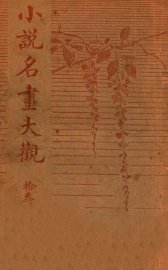 小說名畫大觀
拾叁